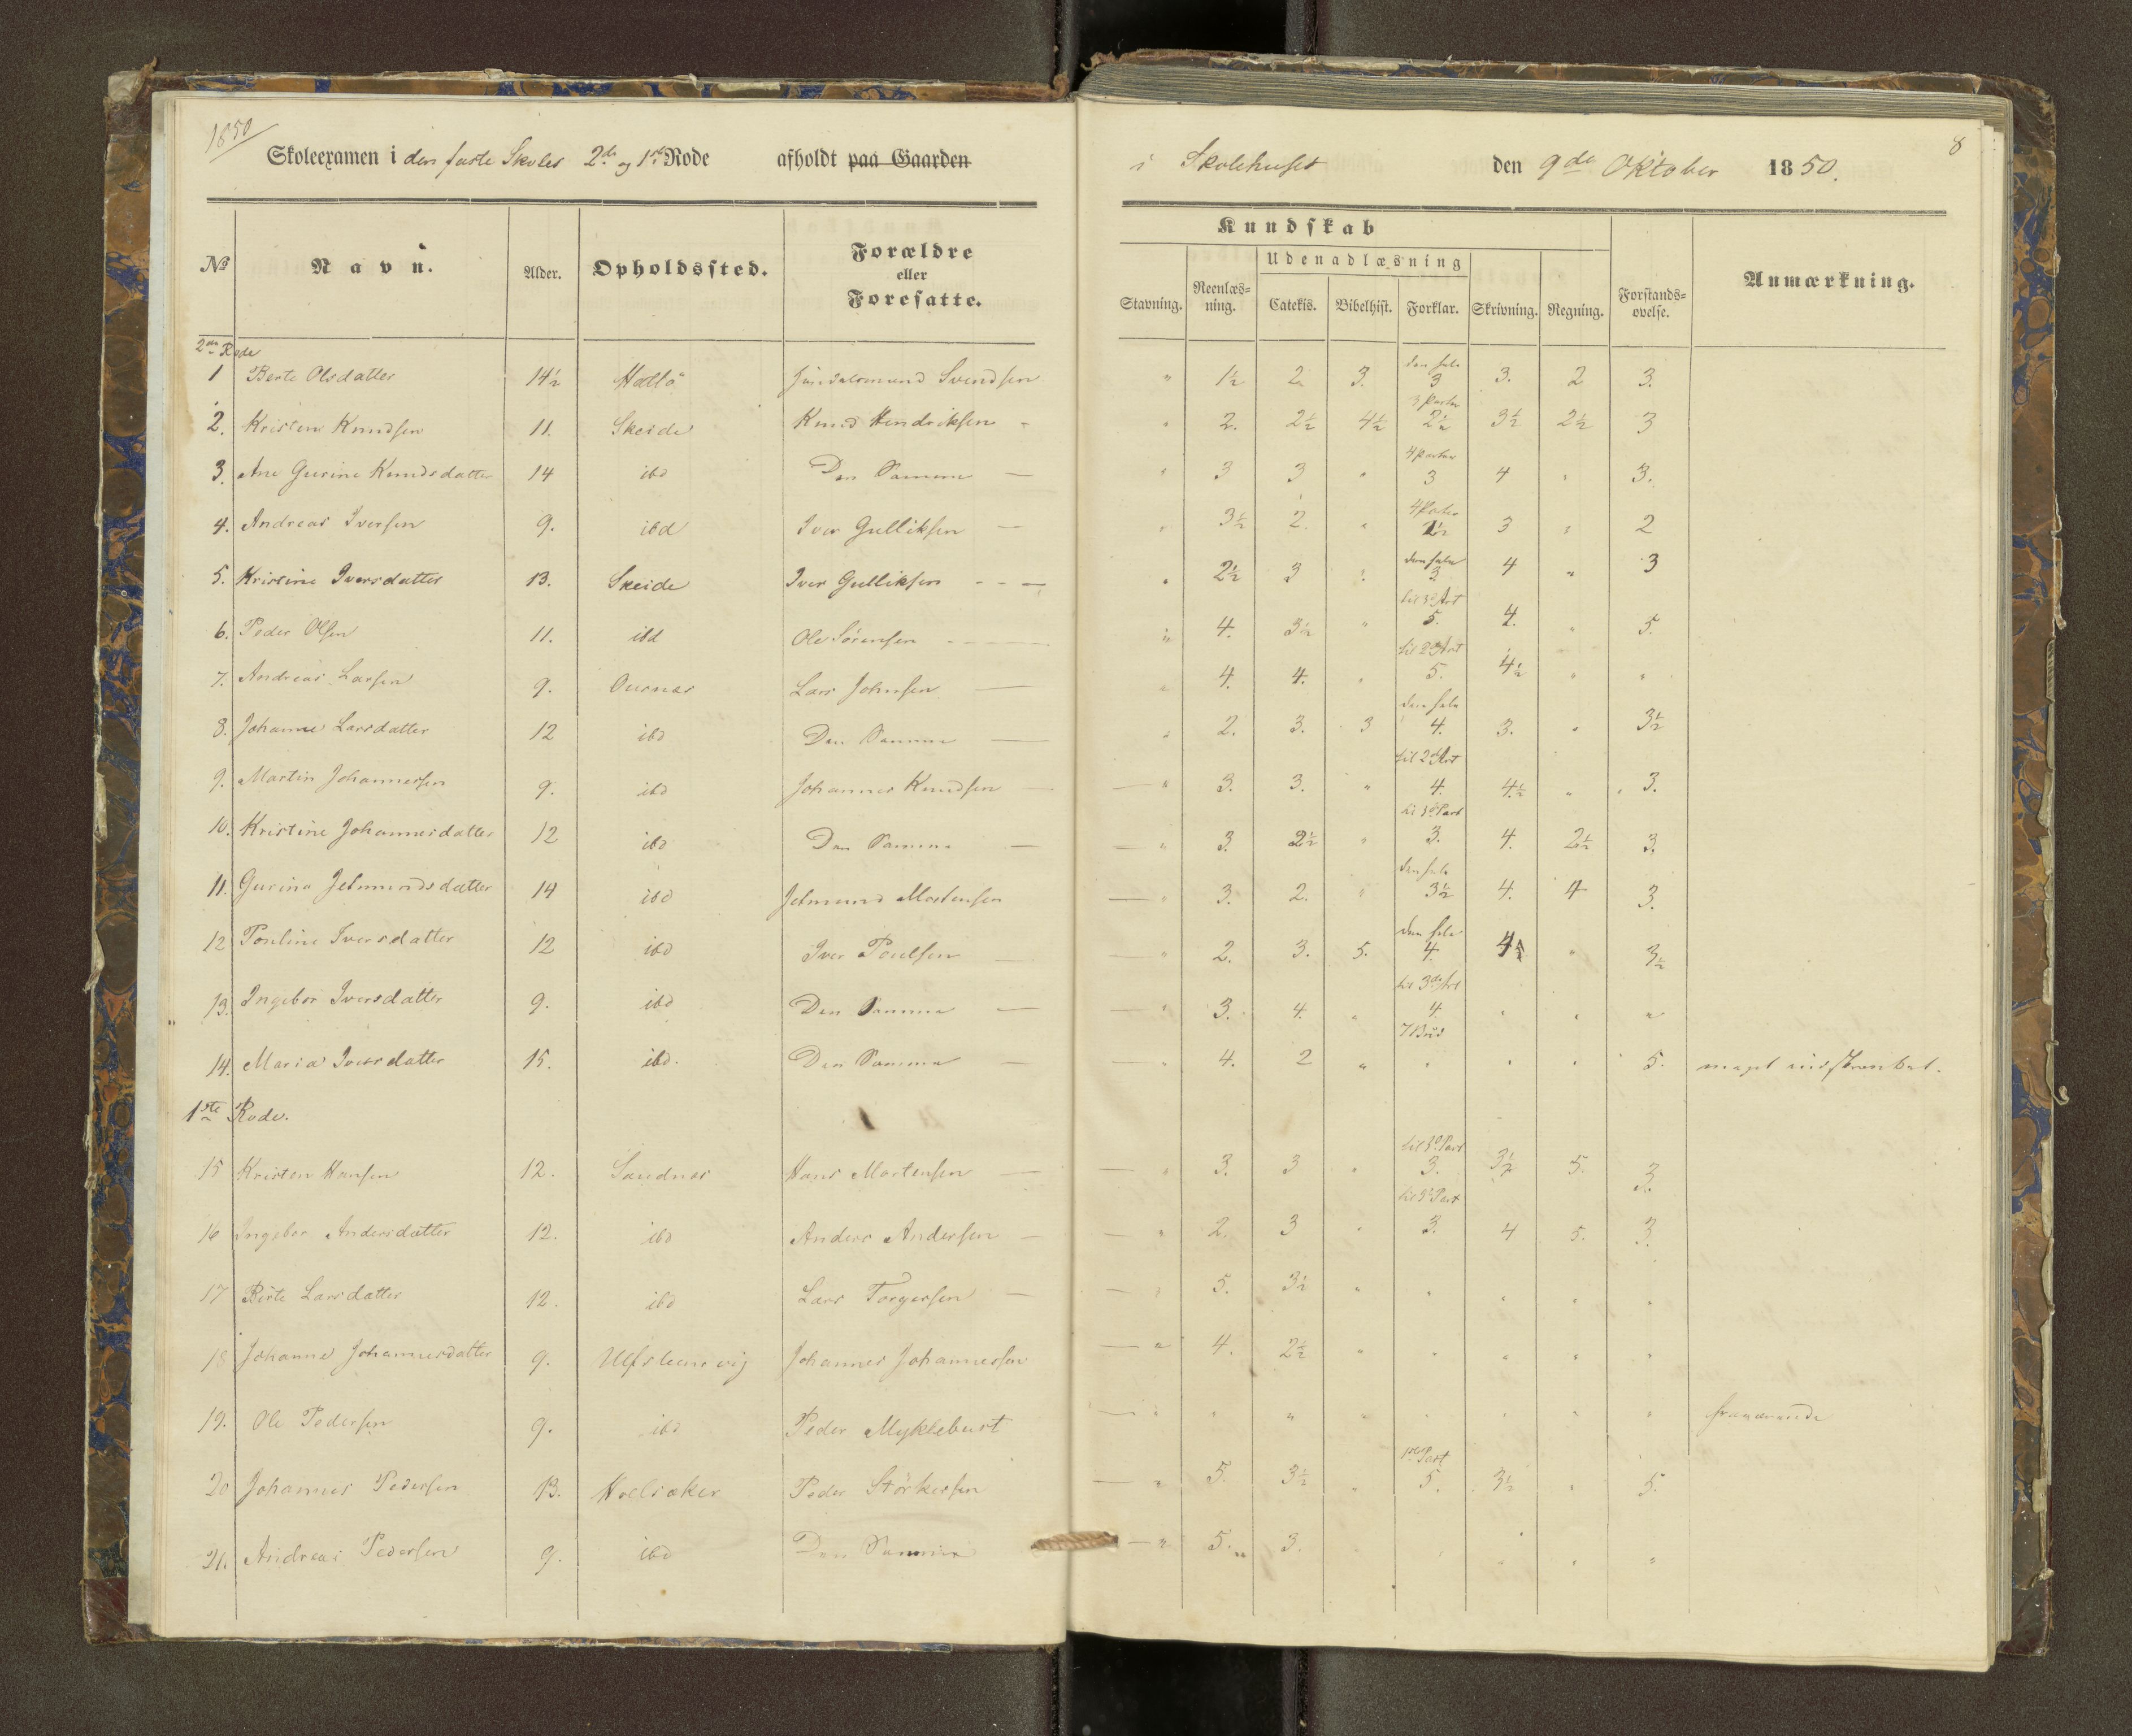 1850
Skoleexamen i den faste Skoles 2de og 1ste Rode afholdt paa Gaarden i Skolehuset den 9de Oktober 1850.
8
No Navn. Alder. Opholdssted. Forældre eller Foresatte. Kundskab Anmærkning.
Udenadlæsning
Stavning. Reenlæs=ning. Catekis. Bibelhist. Forklar. Skrivning. Regning. Forstands=øvelse.
2den Rode
1 Berte Olsdatter 14½ Hatlö Svendsen " 1½ 2. 3. den hele 3 3. 2 3.
2. Kristen Knudsen 11. Skeide Knud Hendriksen - " 2. 2½ 4½ 3 Parter 2½ 3½ 2½ 3
3. Ane Gurine Knudsdatter 14 ibd Den Samme — " 3 3 " 4 Parter 3 4 " 3.
4. Andreas Iversen 9. ibd Iver Gulliksen — " 3½ 2. " 4 Parter 2½ 3 " 2
5. Kristine Iversdatter 13. Skeide Iver Gulliksen - - — " 2½ 3 " den hele 3 4 " 3
6. Peder Olsen 11. ibd Ole Sörensen - - — " 4. 3½ " til 3d Art 5. 4. " 5.
7. Andreas Larsen 9. Ousnes Lars Johnsen — " 4. 4. " til 2d Art 5. 4½ " "
8. Johanne Larsdatter 12 ibd Den Samme — " 2. 3. 3 den hele 4. 3. " 3½
9. Martin Johannessen 9. ibd Johannes Knudsen — — " 3. 3. " til 2d Art 4. 4½ " 3.
10. Kristine Johannesdatter 12 ibd Den Samme — — " 3. 2½ " til 3d Part 3. 4. 2½ 3.
11. Gurine Jetmundsdatter 14 ibd Jetmund Mortensen — " 3. 2. " den hele 3½ 4. 4 3.
12 Pouline Iversdatter 12 ibd Iver Poulsen — — " 2. 3. 5. den hele 4. 4½ " 3½
13. Ingebor Iversdatter 9. ibd Den Samme — — " 3. 4. " til 3die Art 4. " " "
14. Maria Iversdatter 15. ibd. Den Samme — — " 4. 2 " 7 Bud " " " 5. meget indskrenket.
1ste Rode.
15 Kristen Hansen 12. Saudnes Hans Mortensen — — " 3. 3 " til 3d Part 3. 3½ 5. 3.
16 Ingebor Andersdatter 12. ibd Anders Andersen — — " 2. 3 " til 3d Part 3. 4 5. 3.
17 Birte Larsdatter 12. ibd Lars Torgersen — — " 5. 3½ " " " " "
18 Johanne Johannesdatter 9. Ulfsteensvig Johannes Johannessen — " 4. 2½ " " " " "
19. Ole Pedersen 9. ibd Peder Myklebust — " " " " " " " " fraværende
20 Johannes Pedersen 13. Holsæker Peder Störkersen — " 5. 3½ " 1ste Part 5. 3½ " 5.
21. Andreas Pedersen 9. ibd Den Samme — " 5. 3. " " " " "